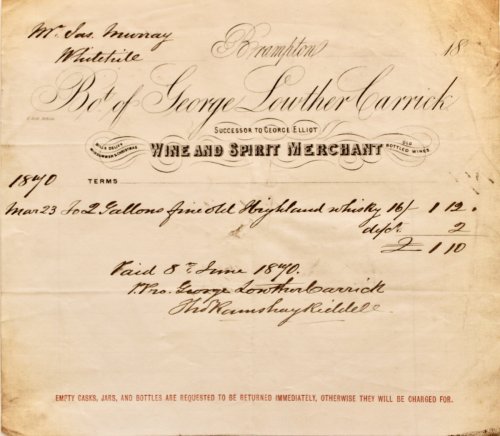 Mr. Jas. Murray
Whitehill
Brampton 18
Bot. of George Lowther Carrick
SUCCESSOR TO GEORGE ELLIOT
BILLS DELIVD MIDSUMMER & CHRISTMAS
WINE AND SPIRIT MERCHANT
OLD BOTTLED WINES
1870 TERMS
Mar 23 To 2 Gallons fine old Highland whisky 16/ 1 12 .
disct. 2
£ 1 10
Paid 8th June 1870.
P. Pro. George Lowther Carrick
Thos Ramshay Riddell
EMPTY CASKS, JARS, AND BOTTLES ARE REQUESTED TO BE RETURNED IMMEDIATELY, OTHERWISE THEY WILL BE CHARGED FOR.